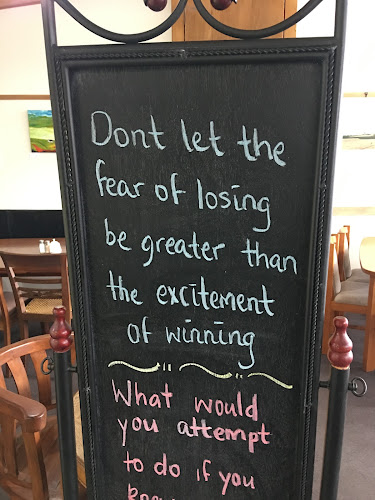 Dont let the
fear of losing
be greater than
the excitement
of winning
What would
you attempt
to do if you